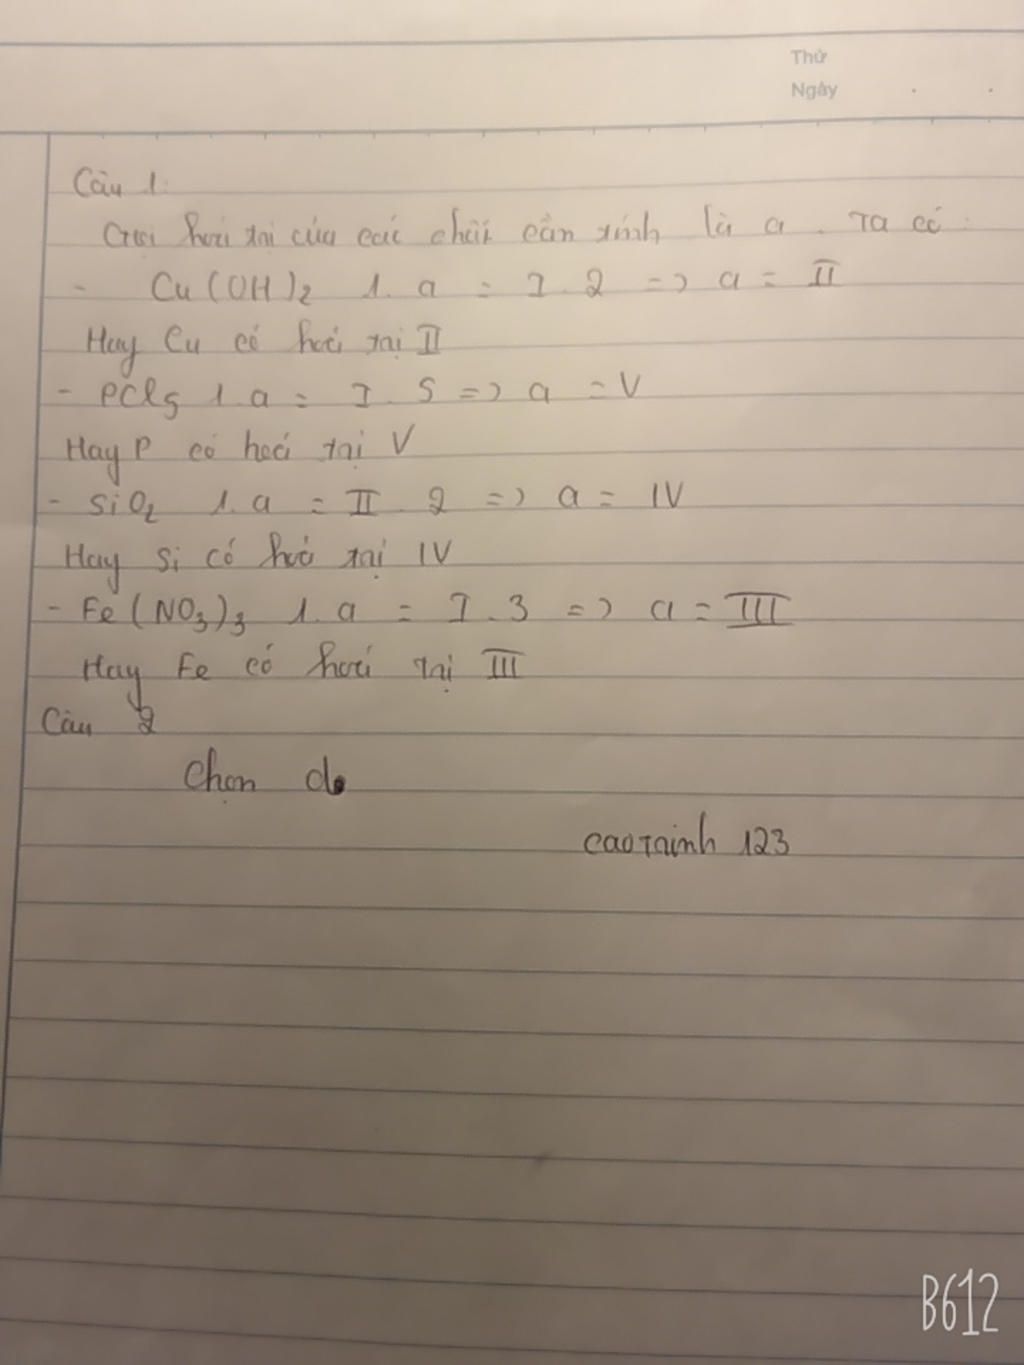 Thứ
Ngày
Câu 1:
Gọi hoá trị của các chất cần tính là a. Ta có:
- Cu(OH)₂ 1.a = I.2 => a = II
Hay Cu có hoá trị II
- PCl₅ 1.a = I.5 => a = V
Hay P có hoá trị V
- SiO₂ 1.a = II.2 => a = IV
Hay Si có hoá trị IV
- Fe(NO₃)₃ 1.a = I.3 => a = III
Hay Fe có hoá trị III
Câu 2
Chọn d.
caotrinh 123
B612